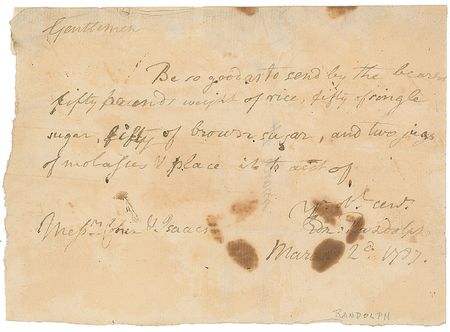 Gentlemen
Be so good as to send by the bearer
fifty pounds weight of rice, fifty of single
sugar, fifty of brown sugar, and two jugs
of molasses & place it to acct of
Yr. Ob. serv.
Mess.rs Cohen & Isaacs
Edm: Randolph
March 2d. 1787.
RANDOLPH